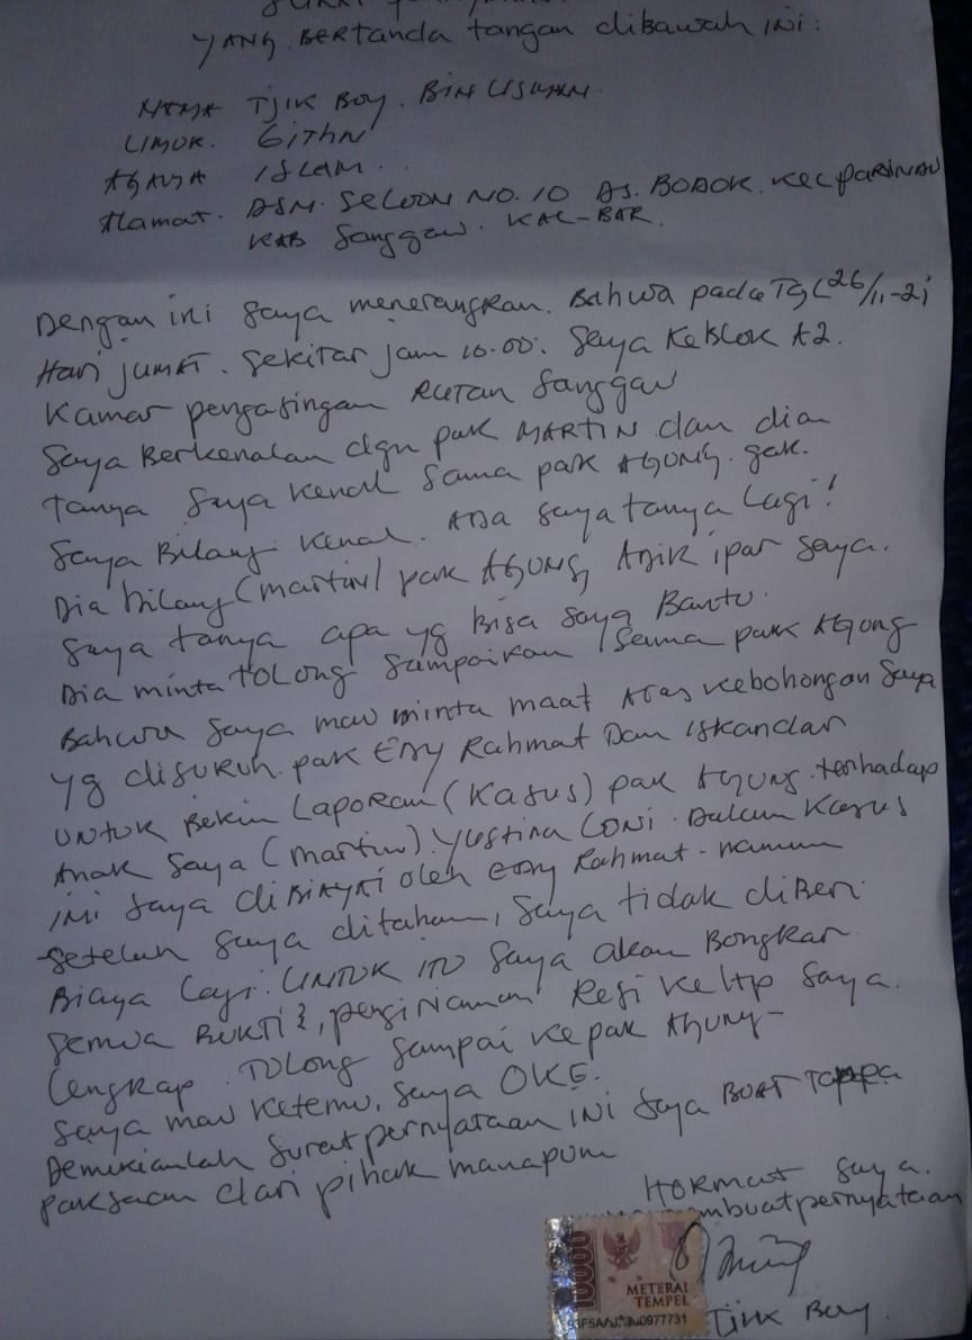 YANG BERTANDA tangan dibawah INI:
NAMA TJIK BOY. BIN USMAN.
UMUR. 61 THN
AGAMA ISLAM.
Alamat. DSN. SELOON NO. 10 DS. BODOK. KEC PARINDU
KAB Sanggau. KAL-BAR.
Dengan ini saya menerangkan. Bahwa pada TgL 26/11-21
Hari jumAT. sekitar jam 10.00. saya KeBLOK A2.
Kamar pengasingan RUTAN Sanggau
Saya Berkenalan dgn pak MARTIN dan dia
Tanya saya kenal sama pak AGUNG. gak.
Saya Bilang kenal. ADA saya tanya Lagi!
Dia bilang (martin) pak AGUNG, Adik ipar saya.
Saya tanya apa yg Bisa saya Bantu.
Dia minta TOLong sampaikan sama pak AGong
Bahwa saya mau minta maaf Atas kebohongan saya
yg disuruh pak EDy Rahmat Dan Iskandar
UNTUK Bekin LapoRan (Kasus) pak AGUNG. terhadap
Anak saya (martin) Yustina LONI. Dalam Kasus
INi saya diBIAyAi oleh EDDy Rahmat. namun
Setelah saya ditahan, saya tidak diBeri
Biaya Lagi. UNTUK ITU saya akan Bongkar
semua BUKTI2, pengiriaman Resi Ke Hp saya.
Lengkap. TOLong sampai ke pak AGung-
Saya mau ketemu. saya OKE.
Demikianlah Surat pernyataan INi saya BUAT TAnpa
paksaan dari pihak manapun
HORMAT saya.
mbuat pernyataan
10000
METERAI
TEMPEL
Tjik Boy.